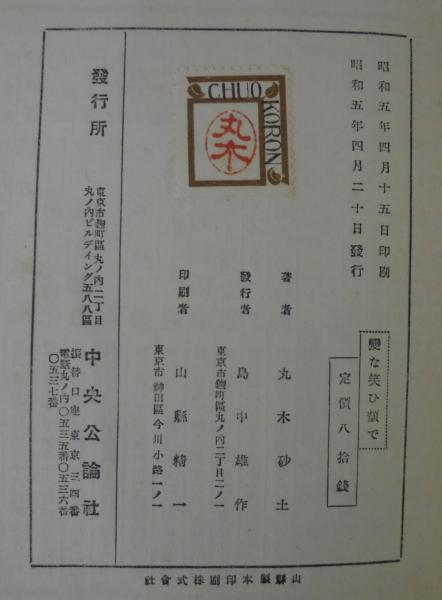 昭和五年四月十五日印刷
昭和五年四月二十日發行
變な笑ひ顏で
定價八拾錢
CHUO
KORON
丸木
著者 丸木砂土
發行者 島中雄作
東京市麴町區丸ノ内二丁目二ノ一
印刷者 山縣精一
東京市神田區今川小路一ノ一
發行所
東京市麴町區丸ノ内二丁目
丸ノ内ビルデイング五八八區
中央公論社
振替口座東京三四番
電話丸ノ内〇五三五番〇五三六番
〇五三七番
山縣製本印刷株式會社